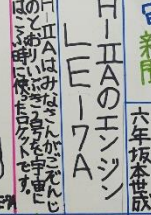 新聞
六年坂本世成
H-ⅡAのエンジン
LE-7A
H-ⅡAはみなさんがごぞんじ
のとおりいぶき2号を宇宙に
はこぶ時に使ったロケットです。